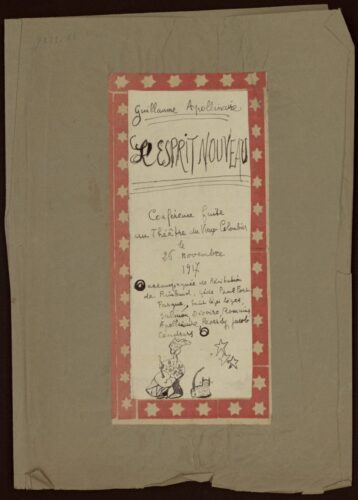 Guillaume Apollinaire
L'ESPRIT NOUVEAU
Conférence faite
au Théâtre du Vieux Colombier
le
26 novembre
1917
accompagnée de Récitation
de Rimbaud, Gide,
Fargue, Saint Léger Léger,
Salmon Divoire, Romains
Apollinaire Reverdy, Jacob
Cendrars